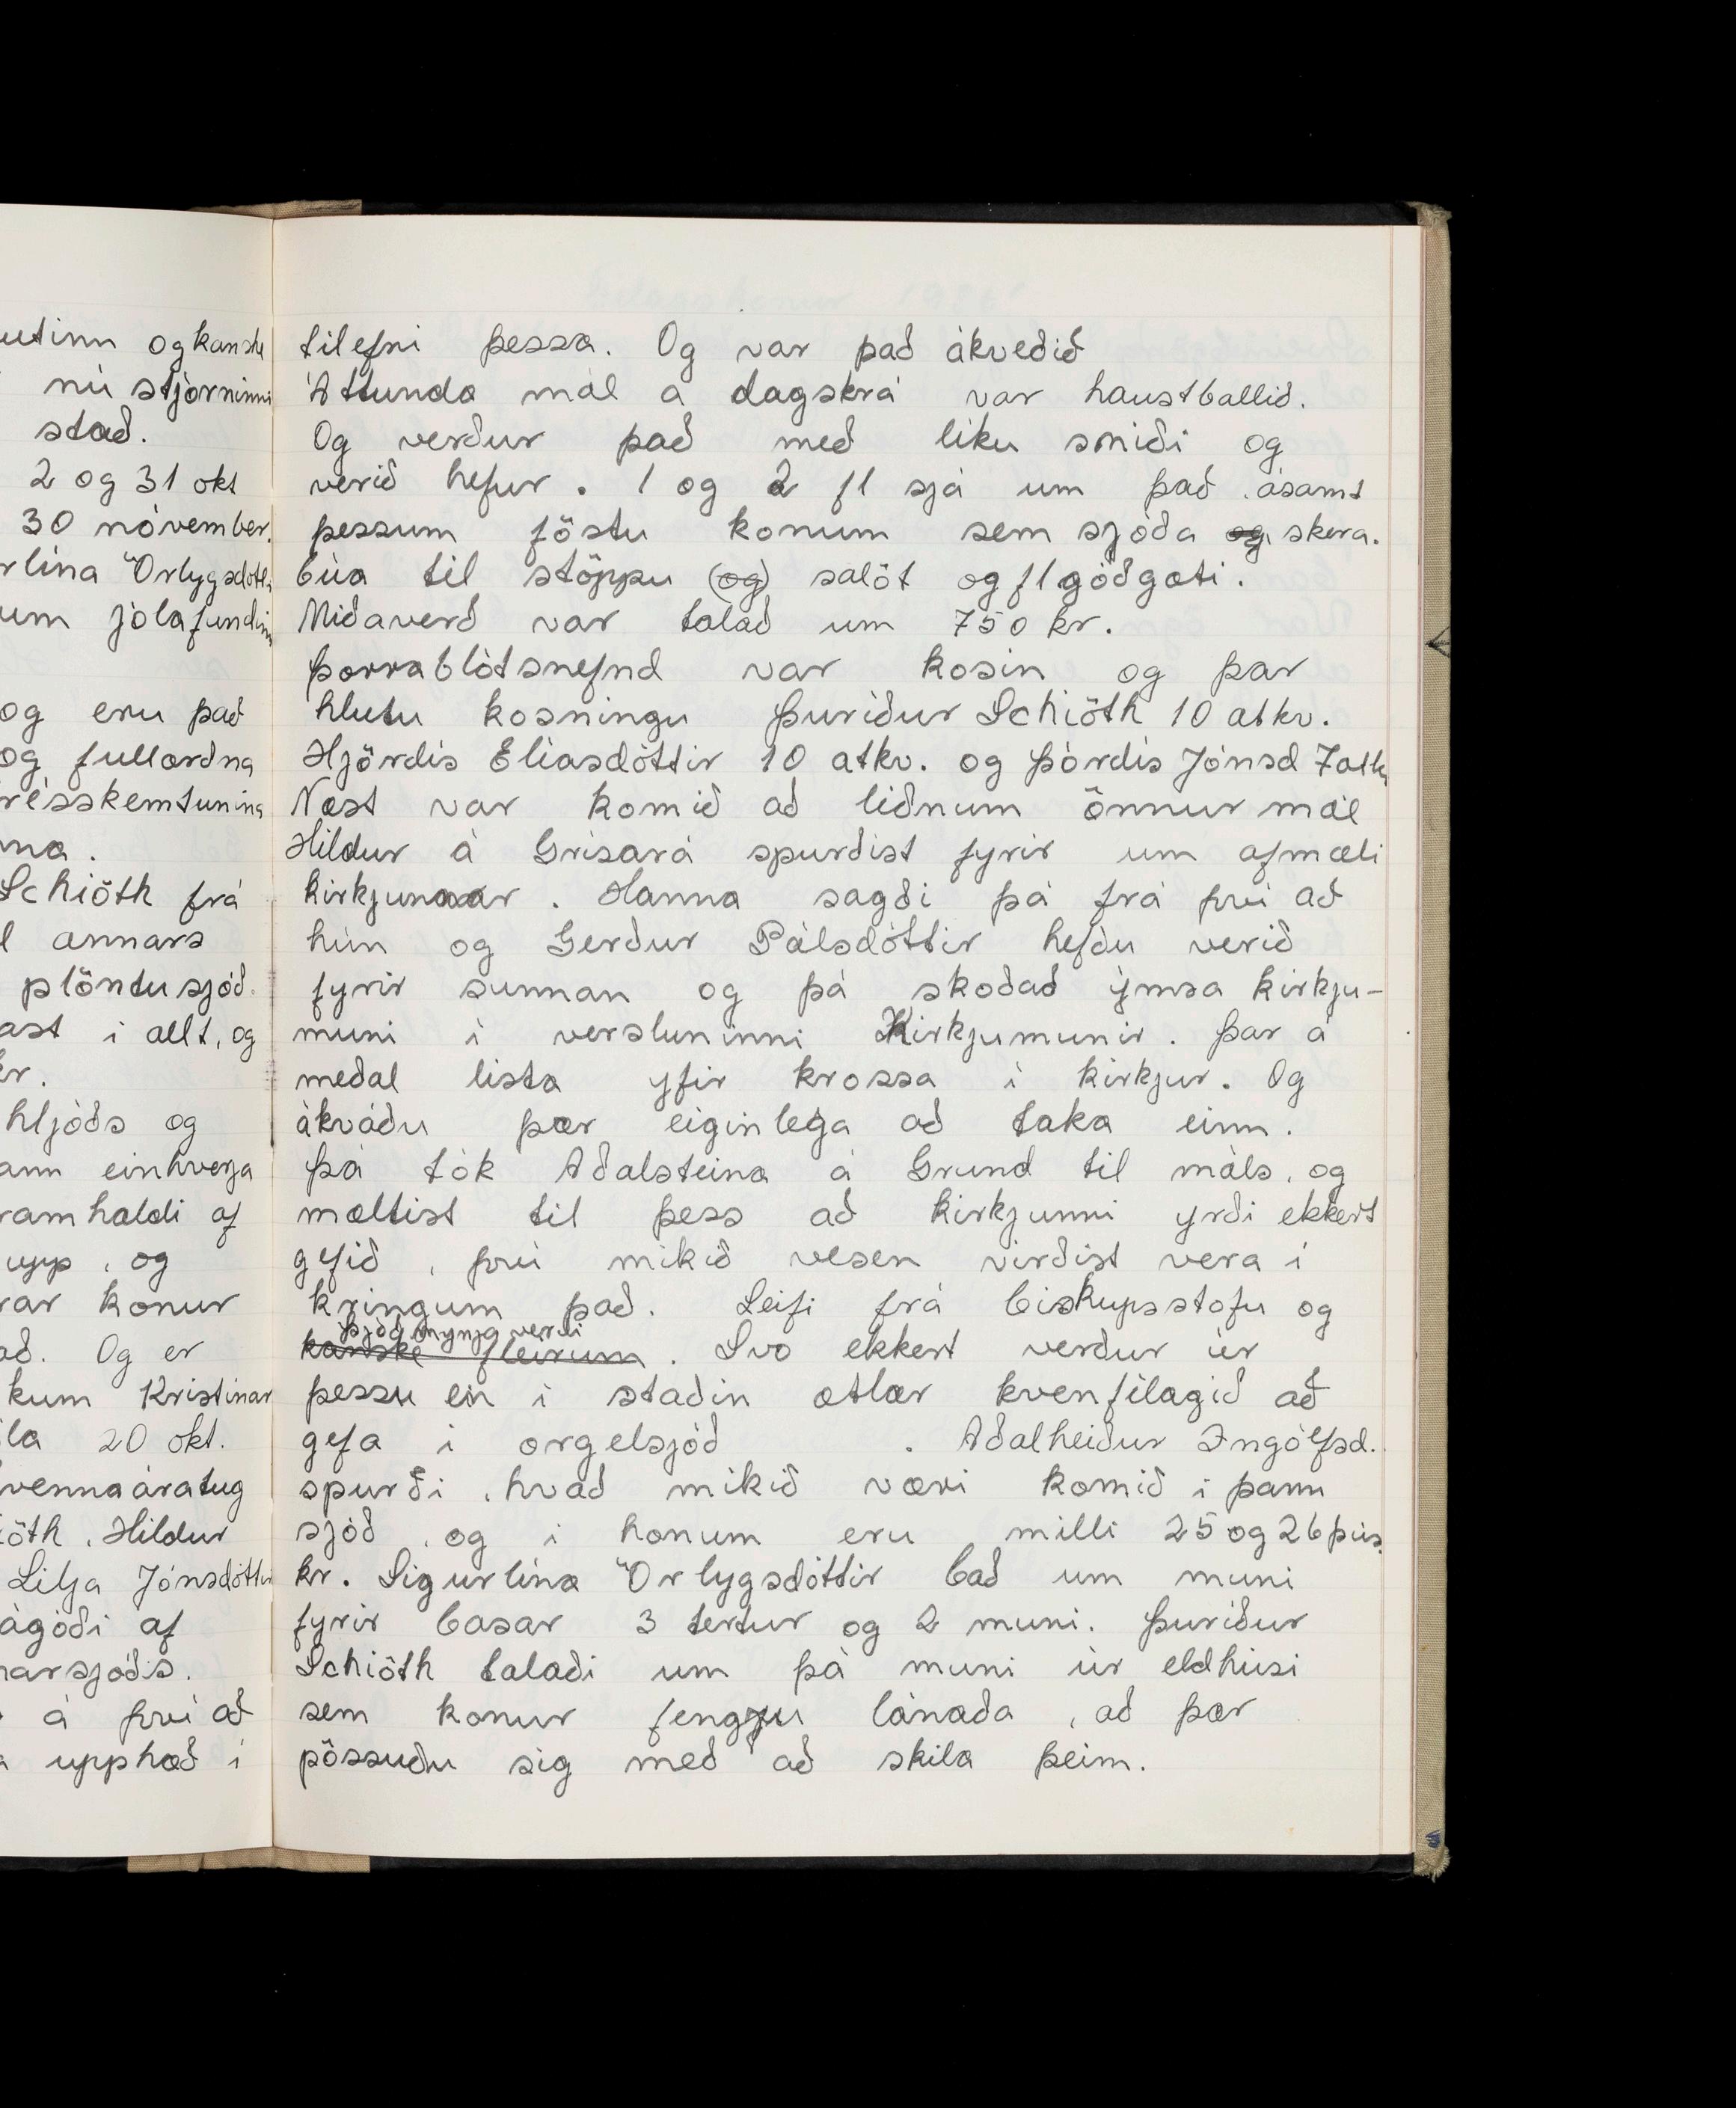 utinn og kanske
nú stjórninni
stað.
2 og 31 okt
30 nóvember.
rlína Örlygsdótti
um jólafundin
og eru það
og fullorðna
résskemtunina
na.
Schiöth frá
l annars
plöntusjóð.
ast i allt, og
kr.
hljóðs og
ann einhverja
ramhaldi af
upp, og
rar konur
að. Og er
kum Kristinar
la 20 okt.
vennaáratug
iöth, Hildur
Lilja Jónsdóttir
ágóði af
narsjóðs.
á því að
upphæð i
tilefni þessa. Og var það ákveðið
Áttunda mál á dagskrá var haustballið.
Og verður það með líku sniði og
verið hefur. 1 og 2 fl sjá um það, ásamt
þessum föstu konum sem sjóða og, skera.
búa til stöppu (og) salöt og fl góðgæti.
Miðaverð var talað um 750 kr.
Þorrablótsnefnd var kosin og þar
hlutu kosningu Þuríður Schiöth 10 atkv.
Hjördís Elíasdóttir 10 atkv. og Þórdís Jónsd 7 atk
Næst var komið að liðnum önnur mál
Hildur á Grísará spurðist fyrir um afmæli
kirkjunnar. Hanna sagði þá frá því að
hún og Gerður Pálsdóttir hefðu verið
fyrir sunnan og þá skoðað ýmsa kirkju-
muni i versluninni Kirkjumunir. Þar á
meðal lista yfir krossa i kirkjur. Og
ákváðu þær eiginlega að taka einn.
Þá tók Aðalsteina á Grund til máls, og
mæltist til þess að kirkjunni yrði ekkert
gefið, því mikið vesen virðist vera i
kringum það. Leifi frá biskupsstofu og
þjóðminja verði
kanske fleirum. Svo ekkert verður úr
þessu en i staðin ætlar kvenfélagið að
gefa i orgelsjóð. Aðalheiður Ingólfsd.
spurði, hvað mikið væri komið i þann
sjóð, og i honum eru milli 25 og 26 þús.
kr. Sigurlína Örlygsdóttir bað um muni
fyrir basar 3 tertur og 2 muni. Þuríður
Schiöth talaði um þá muni úr eldhúsi
sem konur fengju lánaða, að þær
pössuðu sig með að skila þeim.